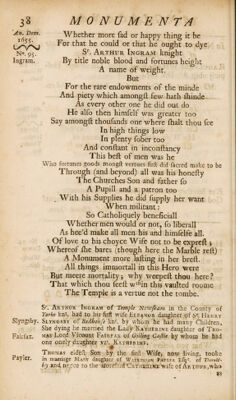 38 MONUMENTA
An. Dom. Whether more sad or happy thing it be
1655. For that he could or that he ought to dye
Nº. 95. Sr. ARTHUR INGRAM knight
Ingram. By title noble blood and fortunes height
A name of weight.
But
For the rare endowments of the minde
And piety which amongst few hath shinde
As every other one he did out do
He also then himself was greater too
Say amongst thousands one where shalt thou see
In high things low
In plenty sober too
And constant in inconstancy
This best of men was he
Who fortunes goods mongst vertues first did sacred make to be
Through (and beyond) all was his honesty
The Churches Son and father so
A Pupill and a patron too
With his Supplies he did supply her want
When militant:
So Catholiquely beneficiall
Whether men would or not, so liberall
As hee'd make all men his and himself all.
Of love to his choyce Wife not to be exprest;
Whereof she bares (though here the Marble rest)
A Monument more lasting in her brest.
All things immortall in this Hero were
But meere mortality; why weepest thou here?
That which thou seest within this vaulted roome
The Temple is a vertue not the tombe.
Sr. ARTHUR INGRAM of Temple Newsham in the County of
Yorke knt. had to his first wife ELEANOR daughter of Sr. HENRY
Slyngsby. SLYNGSBY of knt. by whom he had many Children,
She dying he married the Lady KATHERINE daughter of THO-
Fairfax. MAS Lord Viscount FAIRFAX of Gilling Castle by whom he had
one only daughter KATHERINE.
THOMAS eldest Son by the first Wife, now living, tooke
Payler. in marriage MARY daughter of PAYLER Esqr. of
by and nepce to the CATHERINE wife of ARTHUR, who